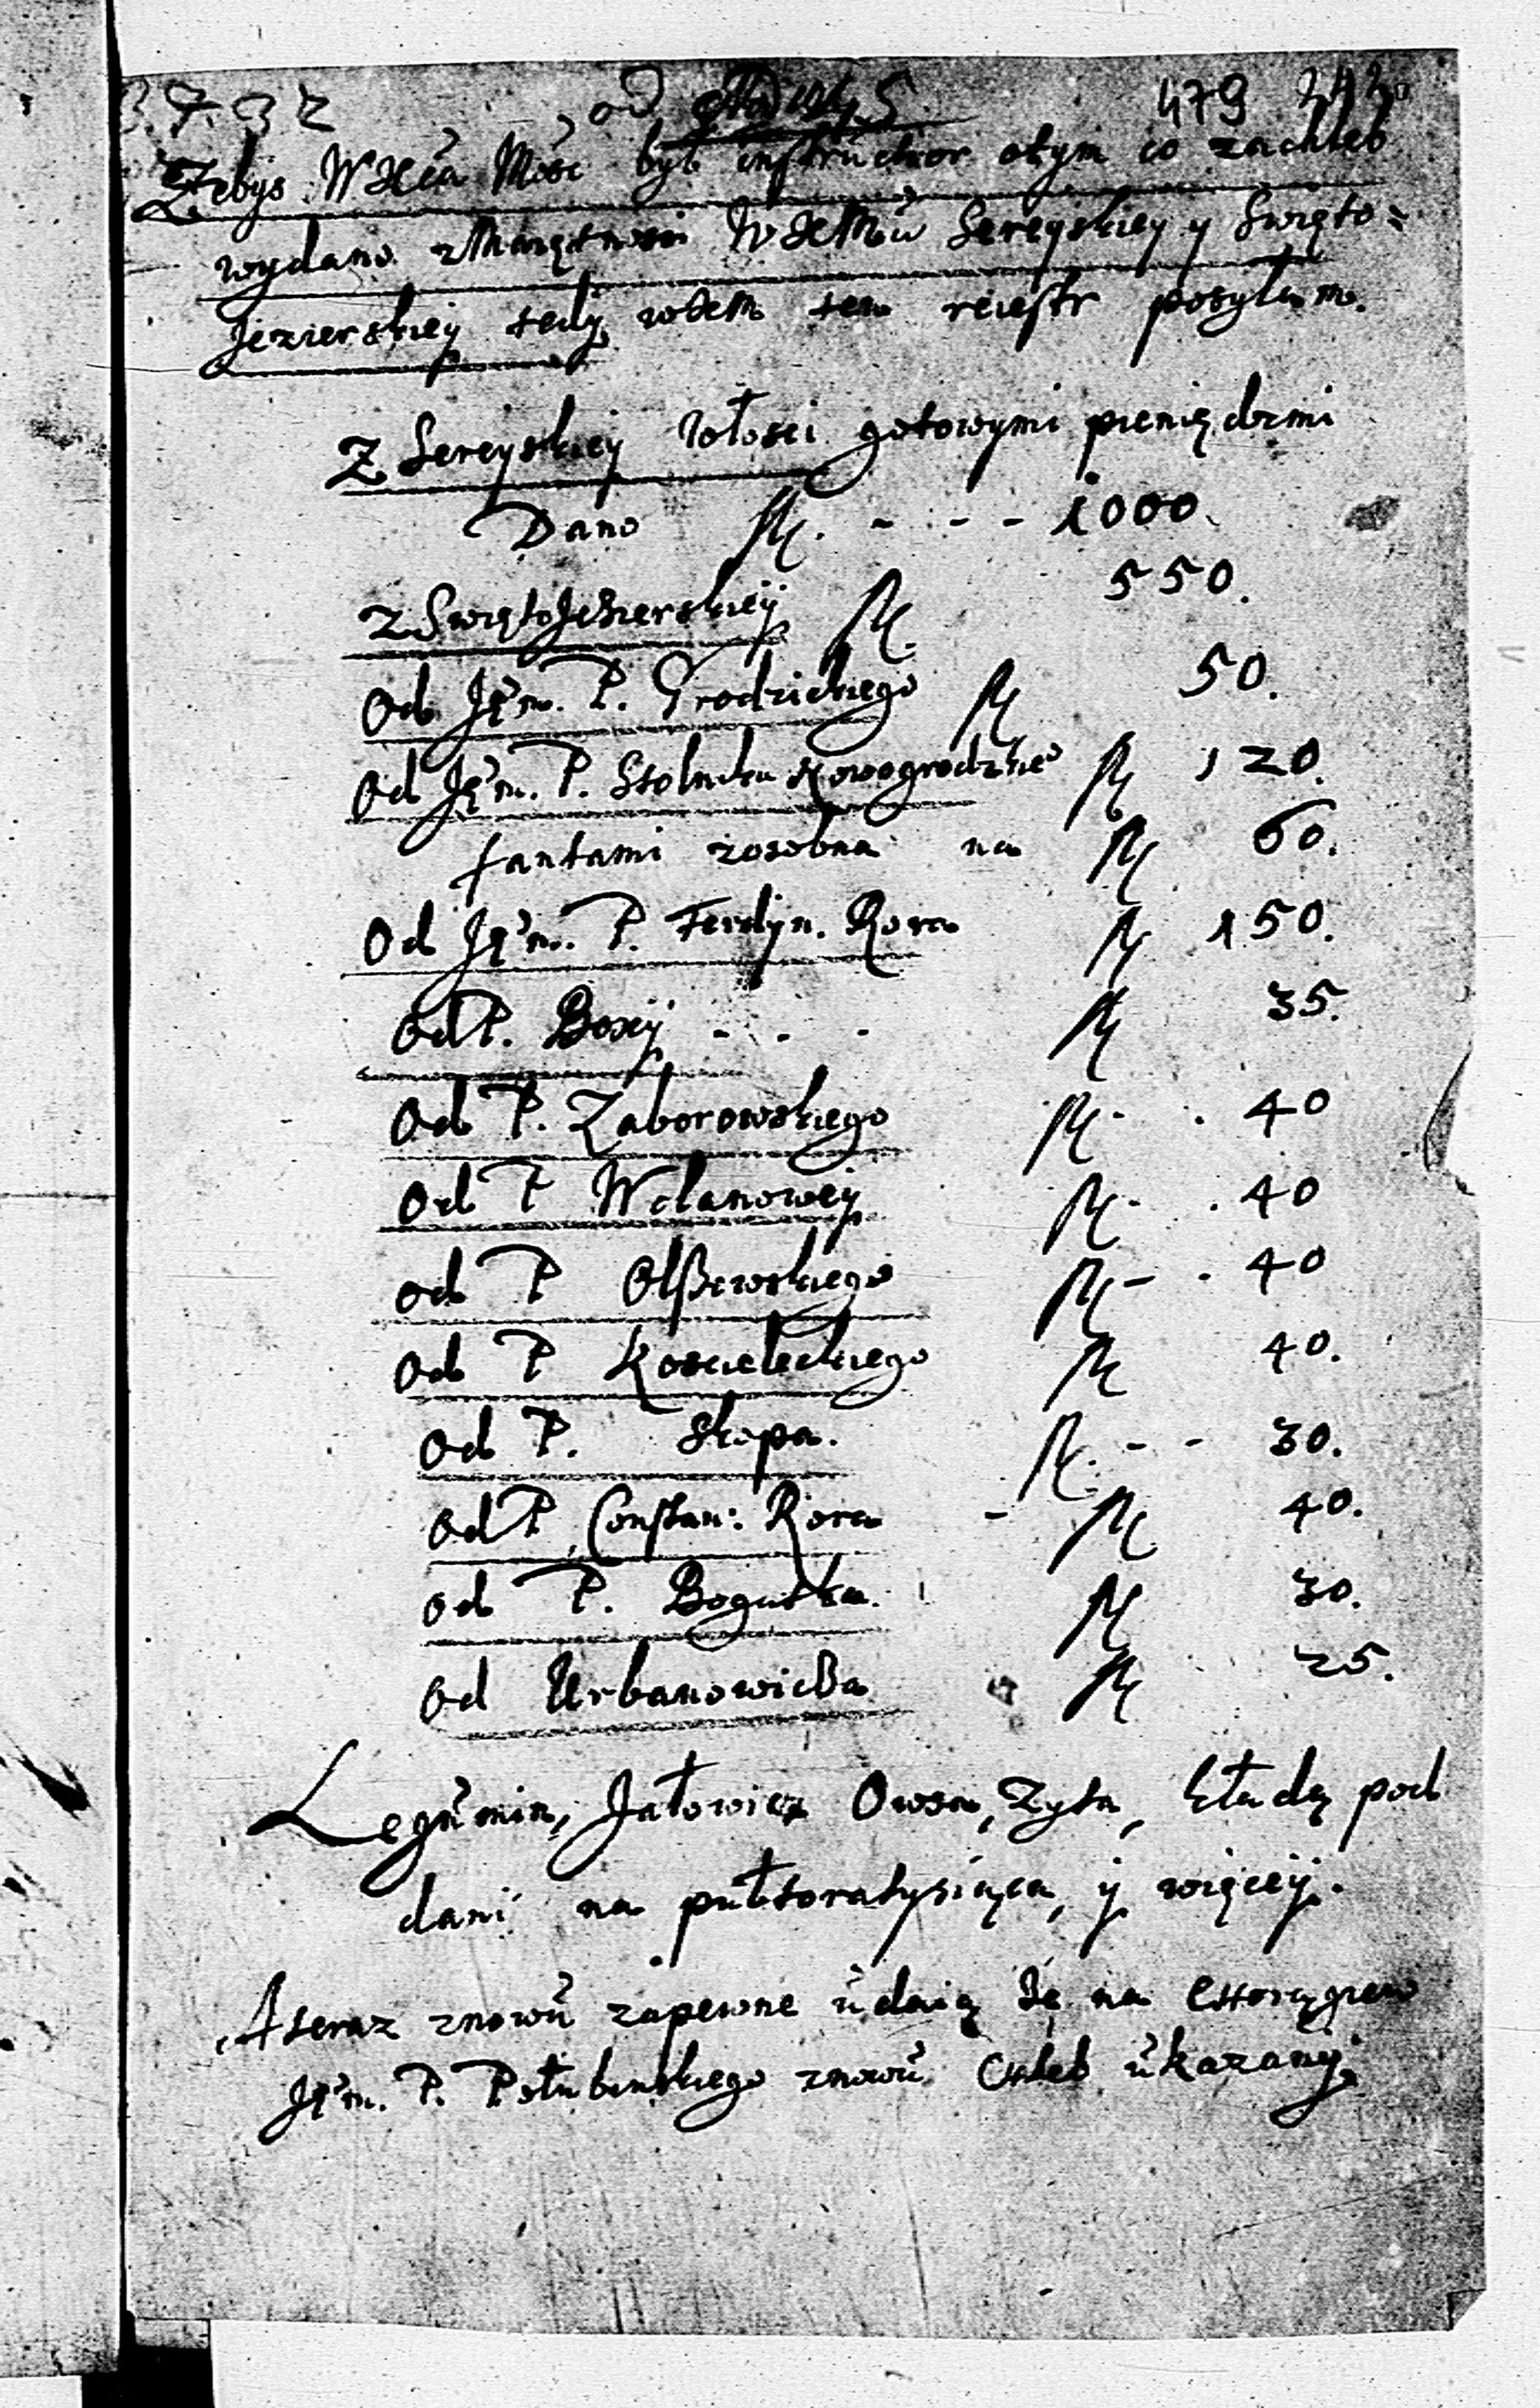 od 479
Zebys WXCa Mosc był instructior otym co zachleb
wydano zMaiętnosci WXCMci Sereyskiey y Swięto=
Jezierskiey tedy ten reiestr posyłam.
Z Sereyskiey Włosci gotowymi pieniędzmi
Dano fl. - - - 1000.
z SwiętoJezierskiey fl. 550.
Od Jęm. P. Grodzickiego fl 50.
Od Jęm. P. Stolnika Nowogrodzkie° fl 120.
fantami zosobna na fl 60.
Od Jęm. P. Ferdyn. Rora fl 150.
Od P. Boxij - . - fl 35.
Od P. Zaborowskiego fl - . 40
Od P Wolanowey fl - . 40
od P Olßewskiego fl - . 40
Od P Koscieleckiego fl 40.
Od P. Skopa. fl. - - 30.
Od P. Constan: Rora - fl 40.
od P. Bogutka. fl 30.
Od Urbanowicza fl 25.
Legumin, Jałowicz Owsa, Zyta, kładą pod
dani na pułtoratysiąca, y więcey.
A teraz znowu zapewne udaią Sę na Chorągiew
Jęm. P. Połubinskiego znowu Chleb ukazany.